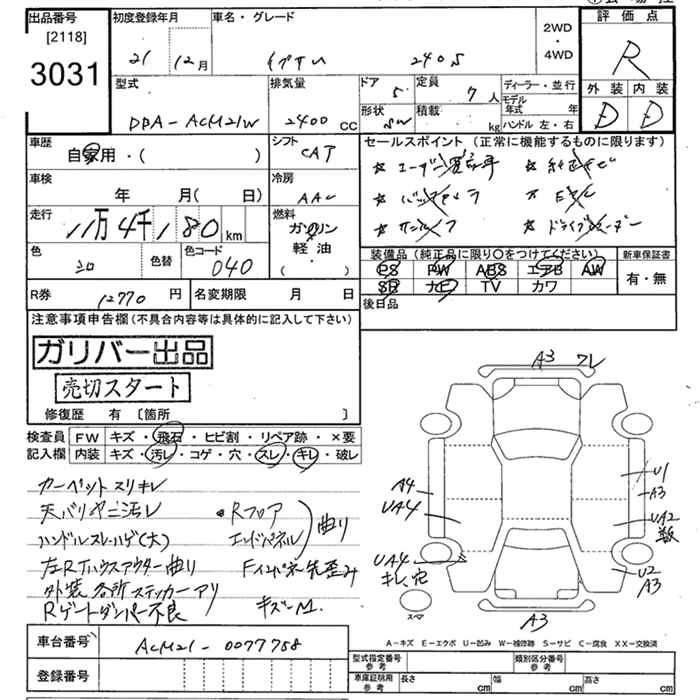 出品番号
[2118]
3031
初度登録年月
21 12月
車名・グレード
イプサム 240S
2WD
・
4WD
評価点
R
外装 内装
D D
型式
DBA-ACM21W
排気量
2400 CC
ドア
5
形状
SW
定員
7人
積載
kg
ディーラー・並行
モデル年式 年
ハンドル 左・右
車歴
自家用・( )
シフト
CAT
車検
年 月( 日)
冷房
AAC
走行
11万4千180 km
燃料
ガソリン
軽・油
( )
色
シロ
色替
色コード
040
R券 12770 円
名変期限 月 日
セールスポイント(正常に機能するものに限ります)
装備品(純正品に限り○をつけてください)
PS PW ABS エアB AW
SR ナビ TV カワ
新車保証書
有・無
後日品
注意事項申告欄(不具合内容等は具体的に記入して下さい)
ガリバー出品
売切スタート
修復歴 有 〔箇所 〕
検査員記入欄
FW キズ・飛石・ヒビ割・リペア跡・×要
内装 キズ・汚レ・コゲ・穴・スレ・キレ・破レ
カーペットスリキレ
天バリヤニ汚レ
ハンドルスレ・ハゲ(大)
左RTハウスアウター曲り
外装各所ステッカーアリ
Rゲートダンパー不良
Rフロア
エンドパネル
曲り
Fインパネ先歪み
キズ-M.
A3 フレ
A4
UA4
UA4
キレ、穴
U1
A3
UA2
U2
A3
スペア
A3
A-キズ E-エクボ U-凹み W-補修跡 S-サビ C-腐食 XX-交換済
車台番号 ACM21-0077758
登録番号
型式指定番号
参考
類別区分番号
参考
車庫証明用
参考
長さ cm 幅 cm 高さ cm